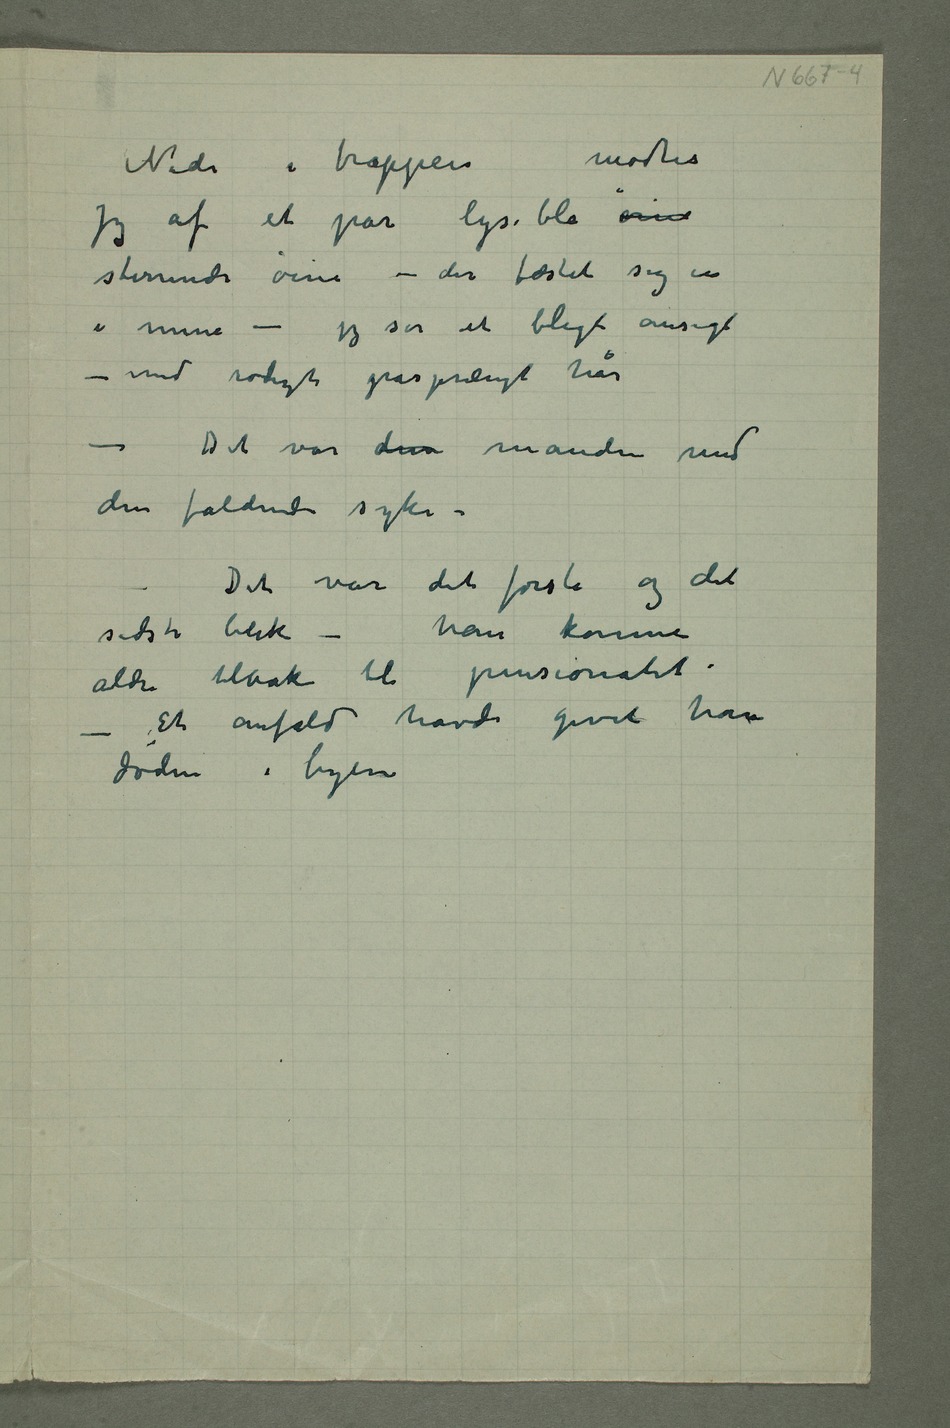 N 667-4
Nede i trappen mødtes
jeg af et par lyseblå øine
stirrende øine – der fæstet sig in
i mine – jeg sår et blegt ansigt
– med rødligt gråsprængt hår
– Det var den manden med
den faldende syke –
– Det var det første og det
sidste blik – han komme
aldri tilbake til pensionatet.
– Et anfald havde givet han
døden i byen